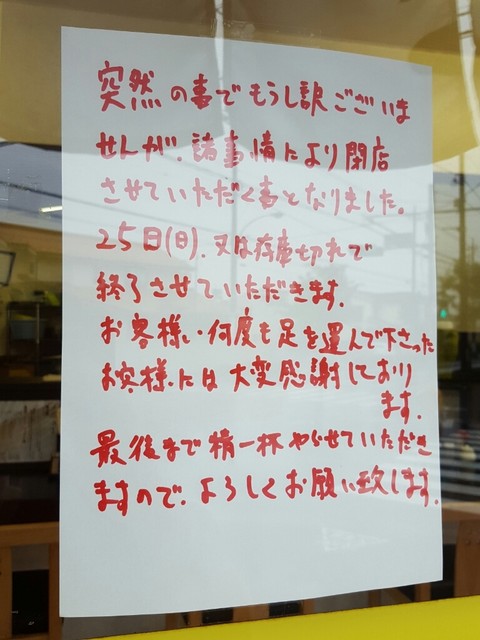 突然の事でもうし訳ございま
せんが、諸事情により閉店
させていただく事となりました。
25日(日)、又は在庫切れで
終了させていただきます。
お客様、何度も足を運んで下さった
お客様には大変感謝しており
ます。
最後まで精一杯やらせていただき
ますので、よろしくお願い致します。